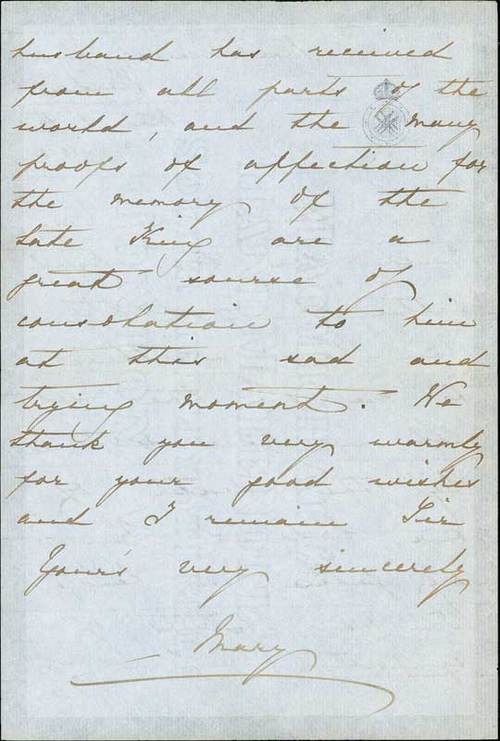 husband has received
from all parts of the
world, and the many
proofs of affection for
the memory of the
late King are a
great sourse of
consolation to him
at this sad and
trying moment. We
thank you very warmly
for your good wishes
and I remain Sir
Your's very sincerely
Mary